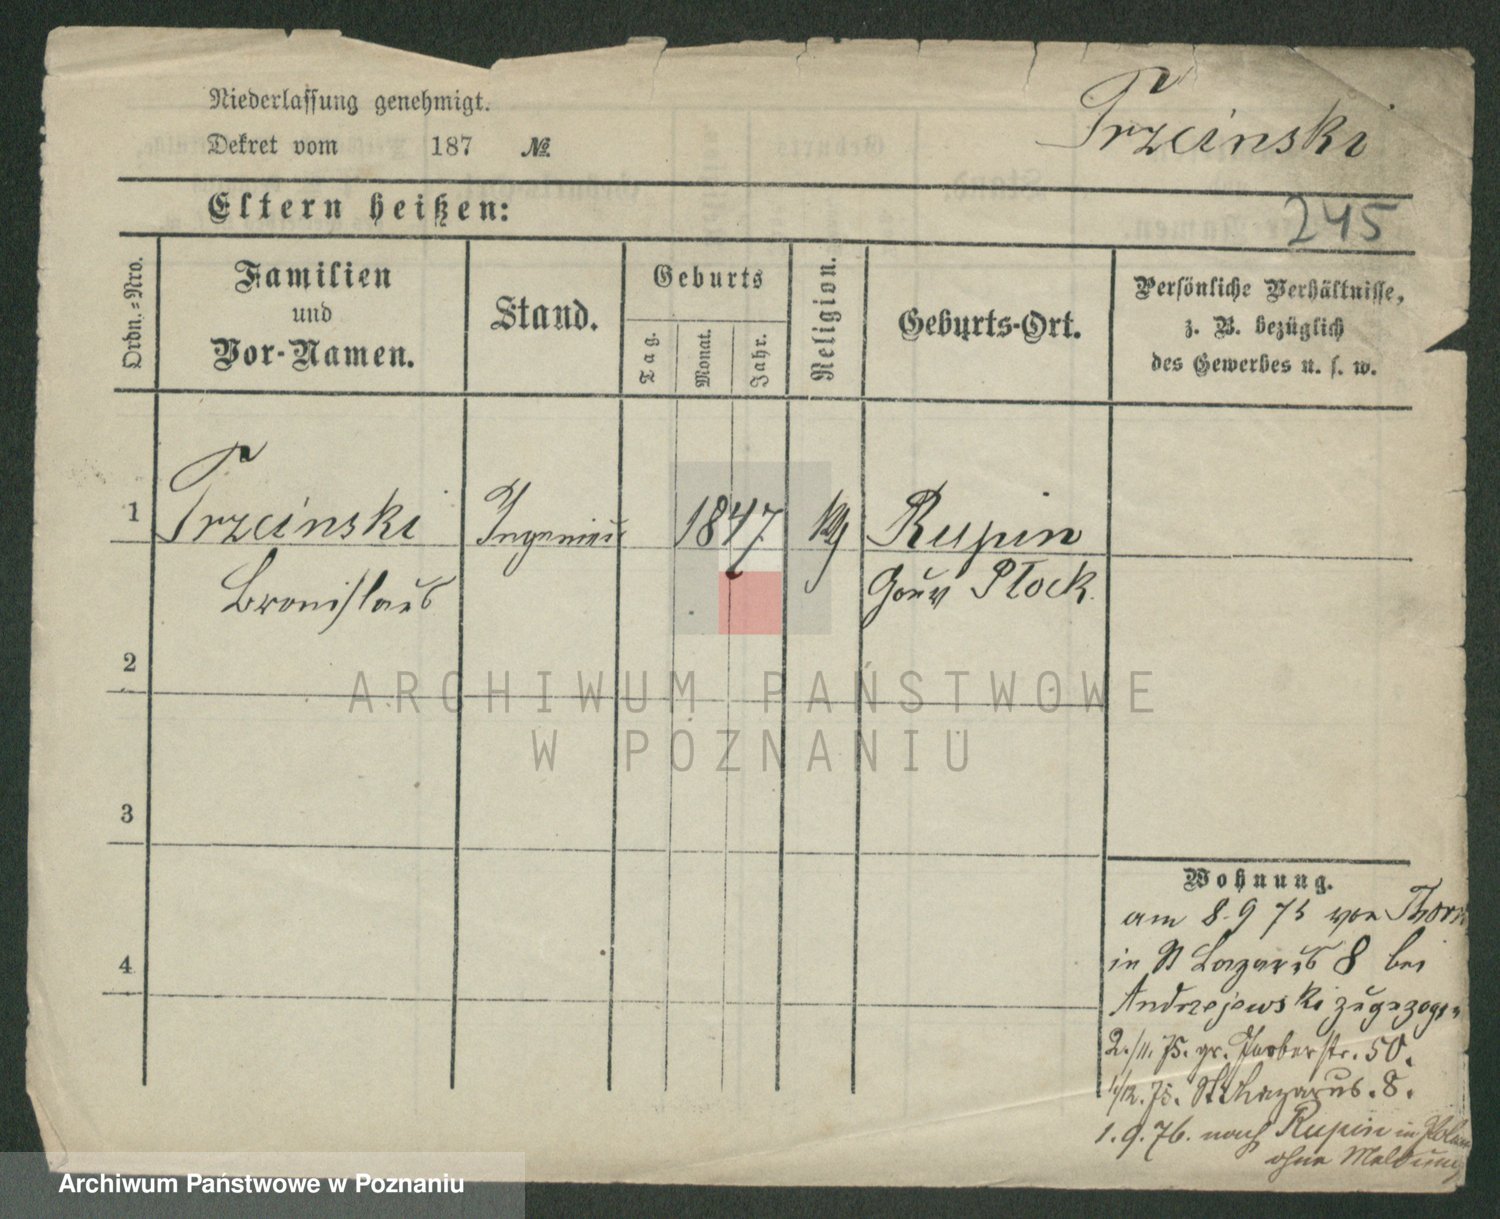 Niederlassung genehmigt.
Dekret vom 187 №
Trzcinski
Eltern heißen:
245
Ordn.-Nro.
Familien
und
Vor-Namen.
Stand.
Geburts
Tag.
Monat.
Jahr.
Religion.
Geburts-Ort.
Persönliche Verhältnisse,
z. B. bezüglich
des Gewerbes u. s. w.
1
Trzcinski
Ingenieur
1847
Rypin
Bronislaus
Gouv Płock.
2
ARCHIWUM PAŃSTWOWE
W POZNANIU
3
Wohnung.
am 8. 9 75 von Thorn
in St Lazarus 8 bei
4
Andrzejewski zugezogen
2./11. 75. gr. Gerberstr. 50.
1/12. 75. St Lazarus. 8.
1. 9. 76. nach Rypin in Polen
ohne Meldung
Archiwum Państwowe w Poznaniu